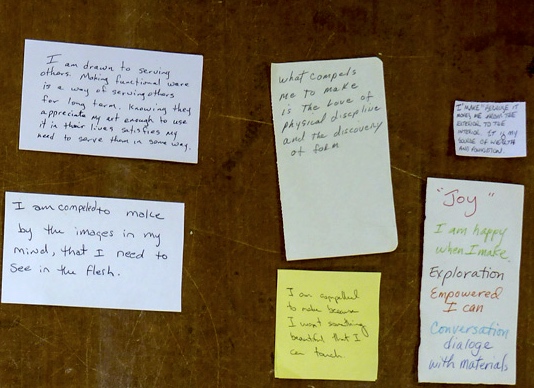 I am drawn to serving
others. Making functional ware
is a way of serving others
for long term. Knowing they
appreciate my art enough to use
it in their lives satisfies my
need to serve them in some way.
I am compelled to make
by the images in my
mind, that I need to
see in the flesh.
what compels
me to make
is the love of
physical discipline
and the discovery
of form
I am compelled
to make because
I want something
beautiful that I
can touch.
I MAKE BECAUSE IT
MOVES ME FROM THE
EXTERIOR TO THE
INTERIOR. IT IS MY
SOURCE OF
AND
"Joy"
I am happy
when I make.
Exploration
Empowered
I can
Conversation
dialoge
with materials